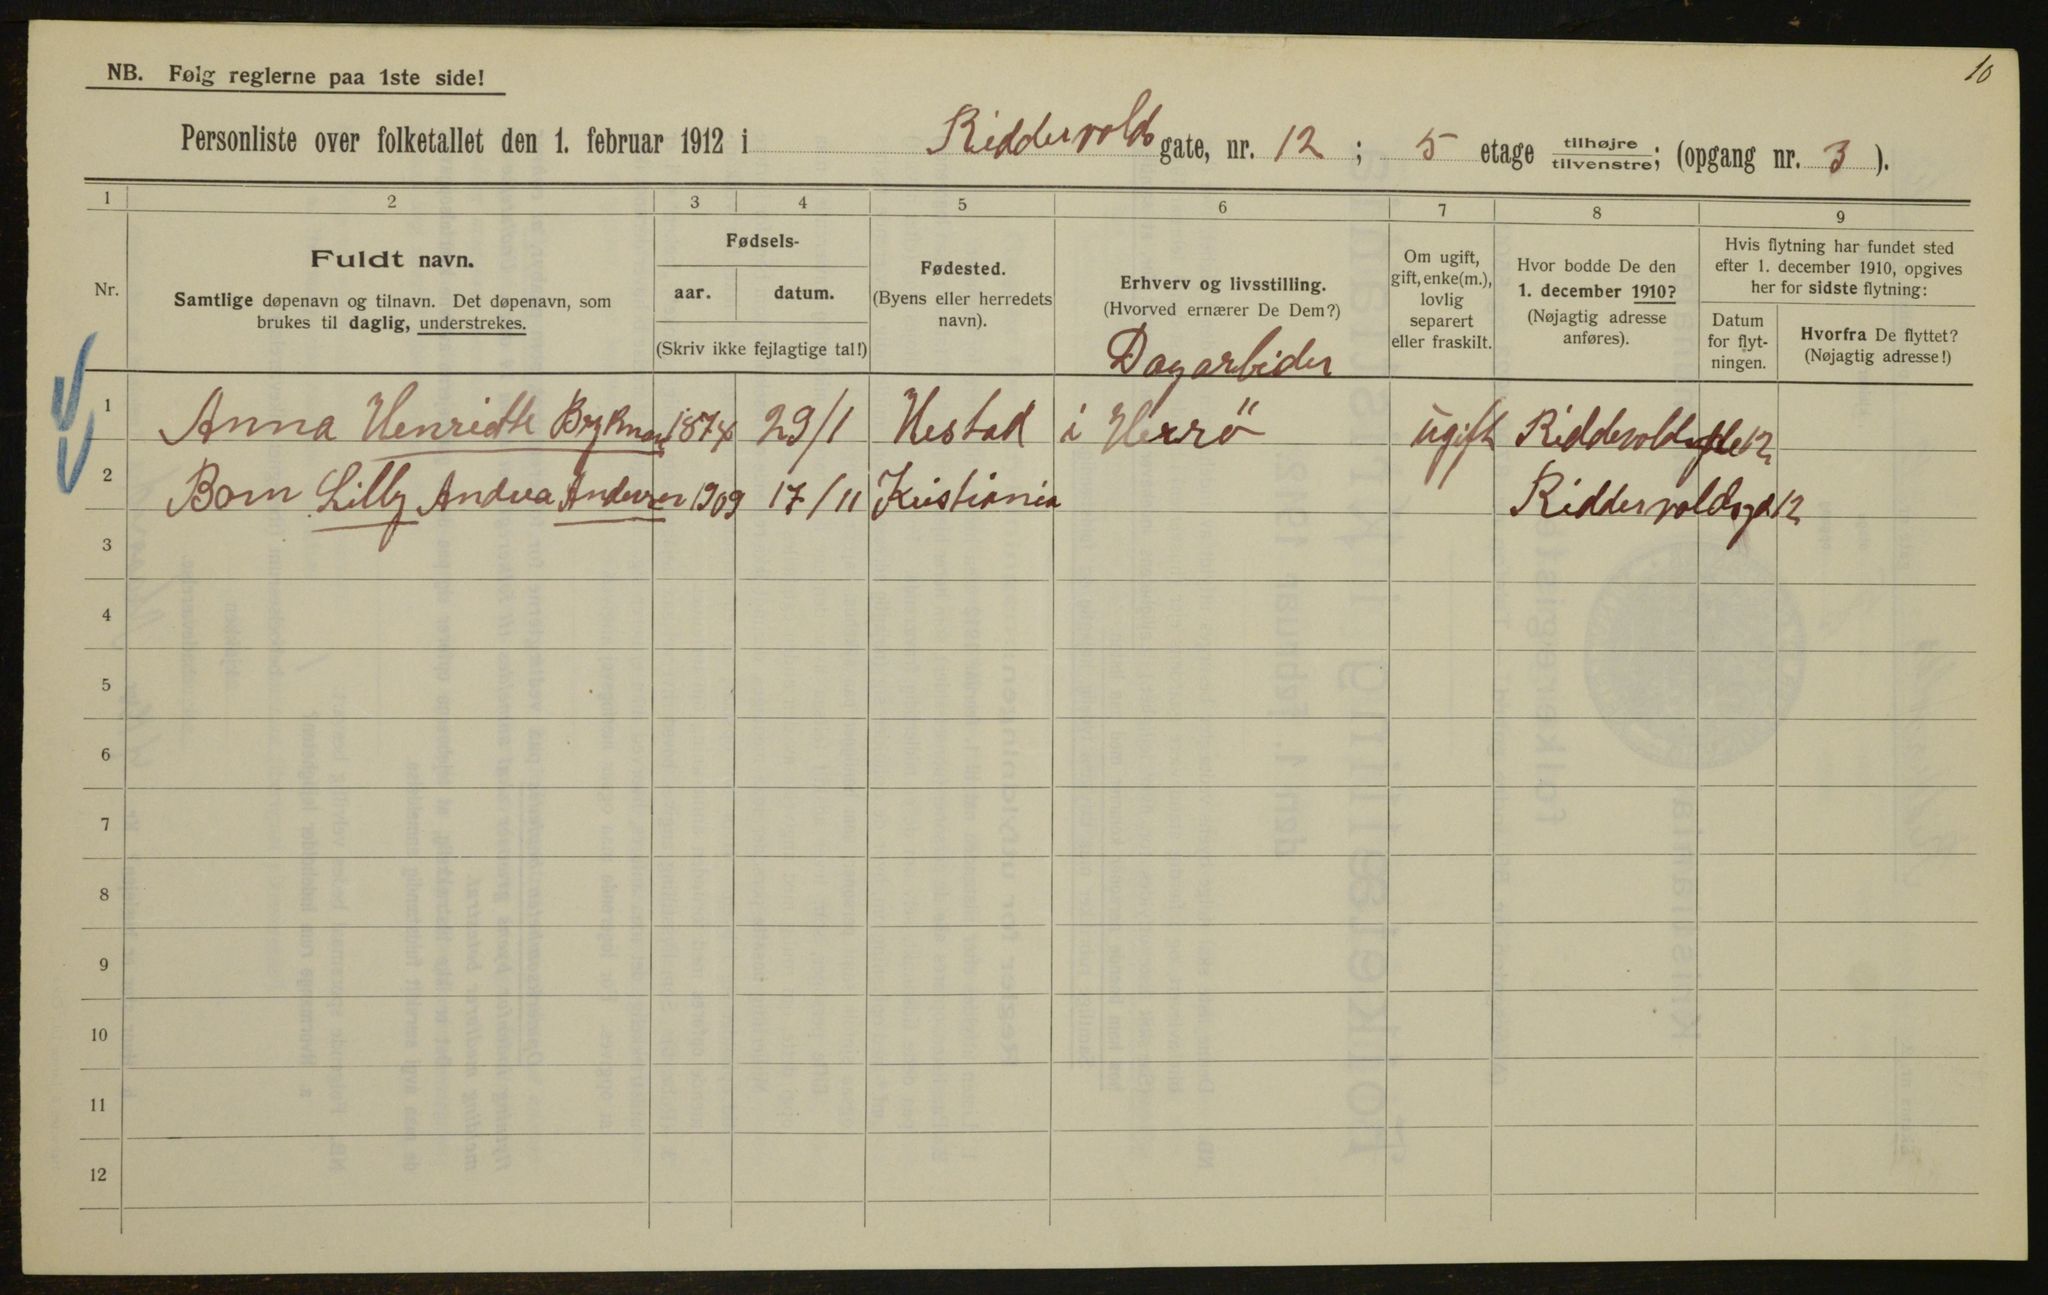 10
NB. Følg reglerne paa 1ste side!
Personliste over folketallet den 1. februar 1912 i Riddervolds gate, nr. 12 ; 5 etage tilhøjre/tilvenstre; (opgang nr. 3 ).
1 2 3 4 5 6 7 8 9
Nr.
Fuldt navn.
Samtlige døpenavn og tilnavn. Det døpenavn, som
brukes til daglig, understrekes.
Fødsels-
aar. datum.
(Skriv ikke fejlagtige tal!)
Fødested.
(Byens eller herredets
navn).
Erhverv og livsstilling.
(Hvorved ernærer De Dem?)
Om ugift,
gift, enke(m.),
lovlig
separert
eller fraskilt.
Hvor bodde De den
1. december 1910?
(Nøjagtig adresse
anføres).
Hvis flytning har fundet sted
efter 1. december 1910, opgives
her for sidste flytning:
Datum
for flyt-
ningen.
Hvorfra De flyttet?
(Nøjagtig adresse!)
Dagarbider
1 Anna Henriette 1874 29/1 i ugift 12
2 Barn Lilly Andrea Andersen 1909 17/11 Kristiania Riddervoldsgd 12
3
4
5
6
7
8
9
10
11
12